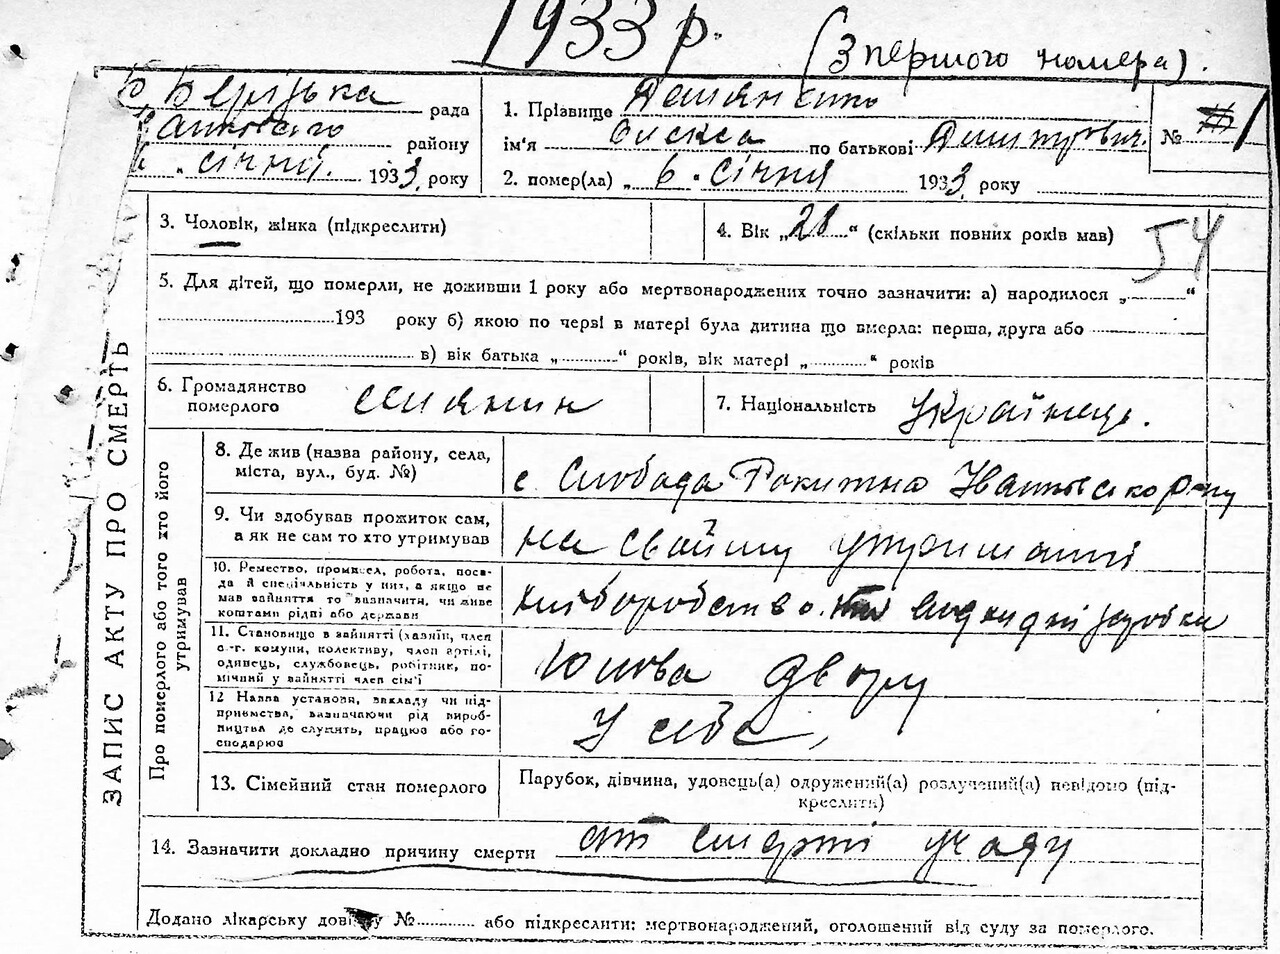 1933 р.
(З першого номера).
рада
району
січня 1933 року
1. Прізвище Дем'яненко
ім'я Олекса по батькові Дмитрович.
2. помер(ла) „ 6 . січня 1933 року
№ 1
3. Чоловік, жінка (підкреслити)
4. Вік „ 28 “ (скільки повних років мав)
54
5. Для дітей, що померли, не доживши 1 року або мертвонароджених точно зазначити: а) народилося „ “
193 року б) якою по черзі в матері була дитина що вмерла: перша, друга або
в) вік батька „ “ років, вік матері „ “ років
6. Громадянство
померлого
7. Національність Українець.
ЗАПИС АКТУ ПРО СМЕРТЬ
Про померлого або того хто його
утримував
8. Де жив (назва району, села,
міста, вул., буд. №)
с Слобода Рокитна
9. Чи здобував прожиток сам,
а як не сам то хто утримував
на свойму утриманні
10. Ремество, промисел, робота, поса-
да й спеціяльність у них, а якщо не
мав зайняття то зазначити, чи живе
коштами рідні або держави
хліборобство
11. Становище в зайнятті (хазяїн, член
с.-г. комуни, колективу, член артілі,
одинець, службовець, робітник, по-
мічний у зайнятті член сім'ї
голова двору
12 Назва установи, закладу чи під-
приємства, зазначаючи рід вироб-
ництва де служить, працює або го-
сподарює
У себе,
13. Сімейний стан померлого
Парубок, дівчина, удовець(а) одружений(а) розлучений(а) невідомо (під-
креслити)
14. Зазначити докладно причину смерти
Додано лікарську довідку № або підкреслити: мертвонароджений, оголошений від суду за померлого.